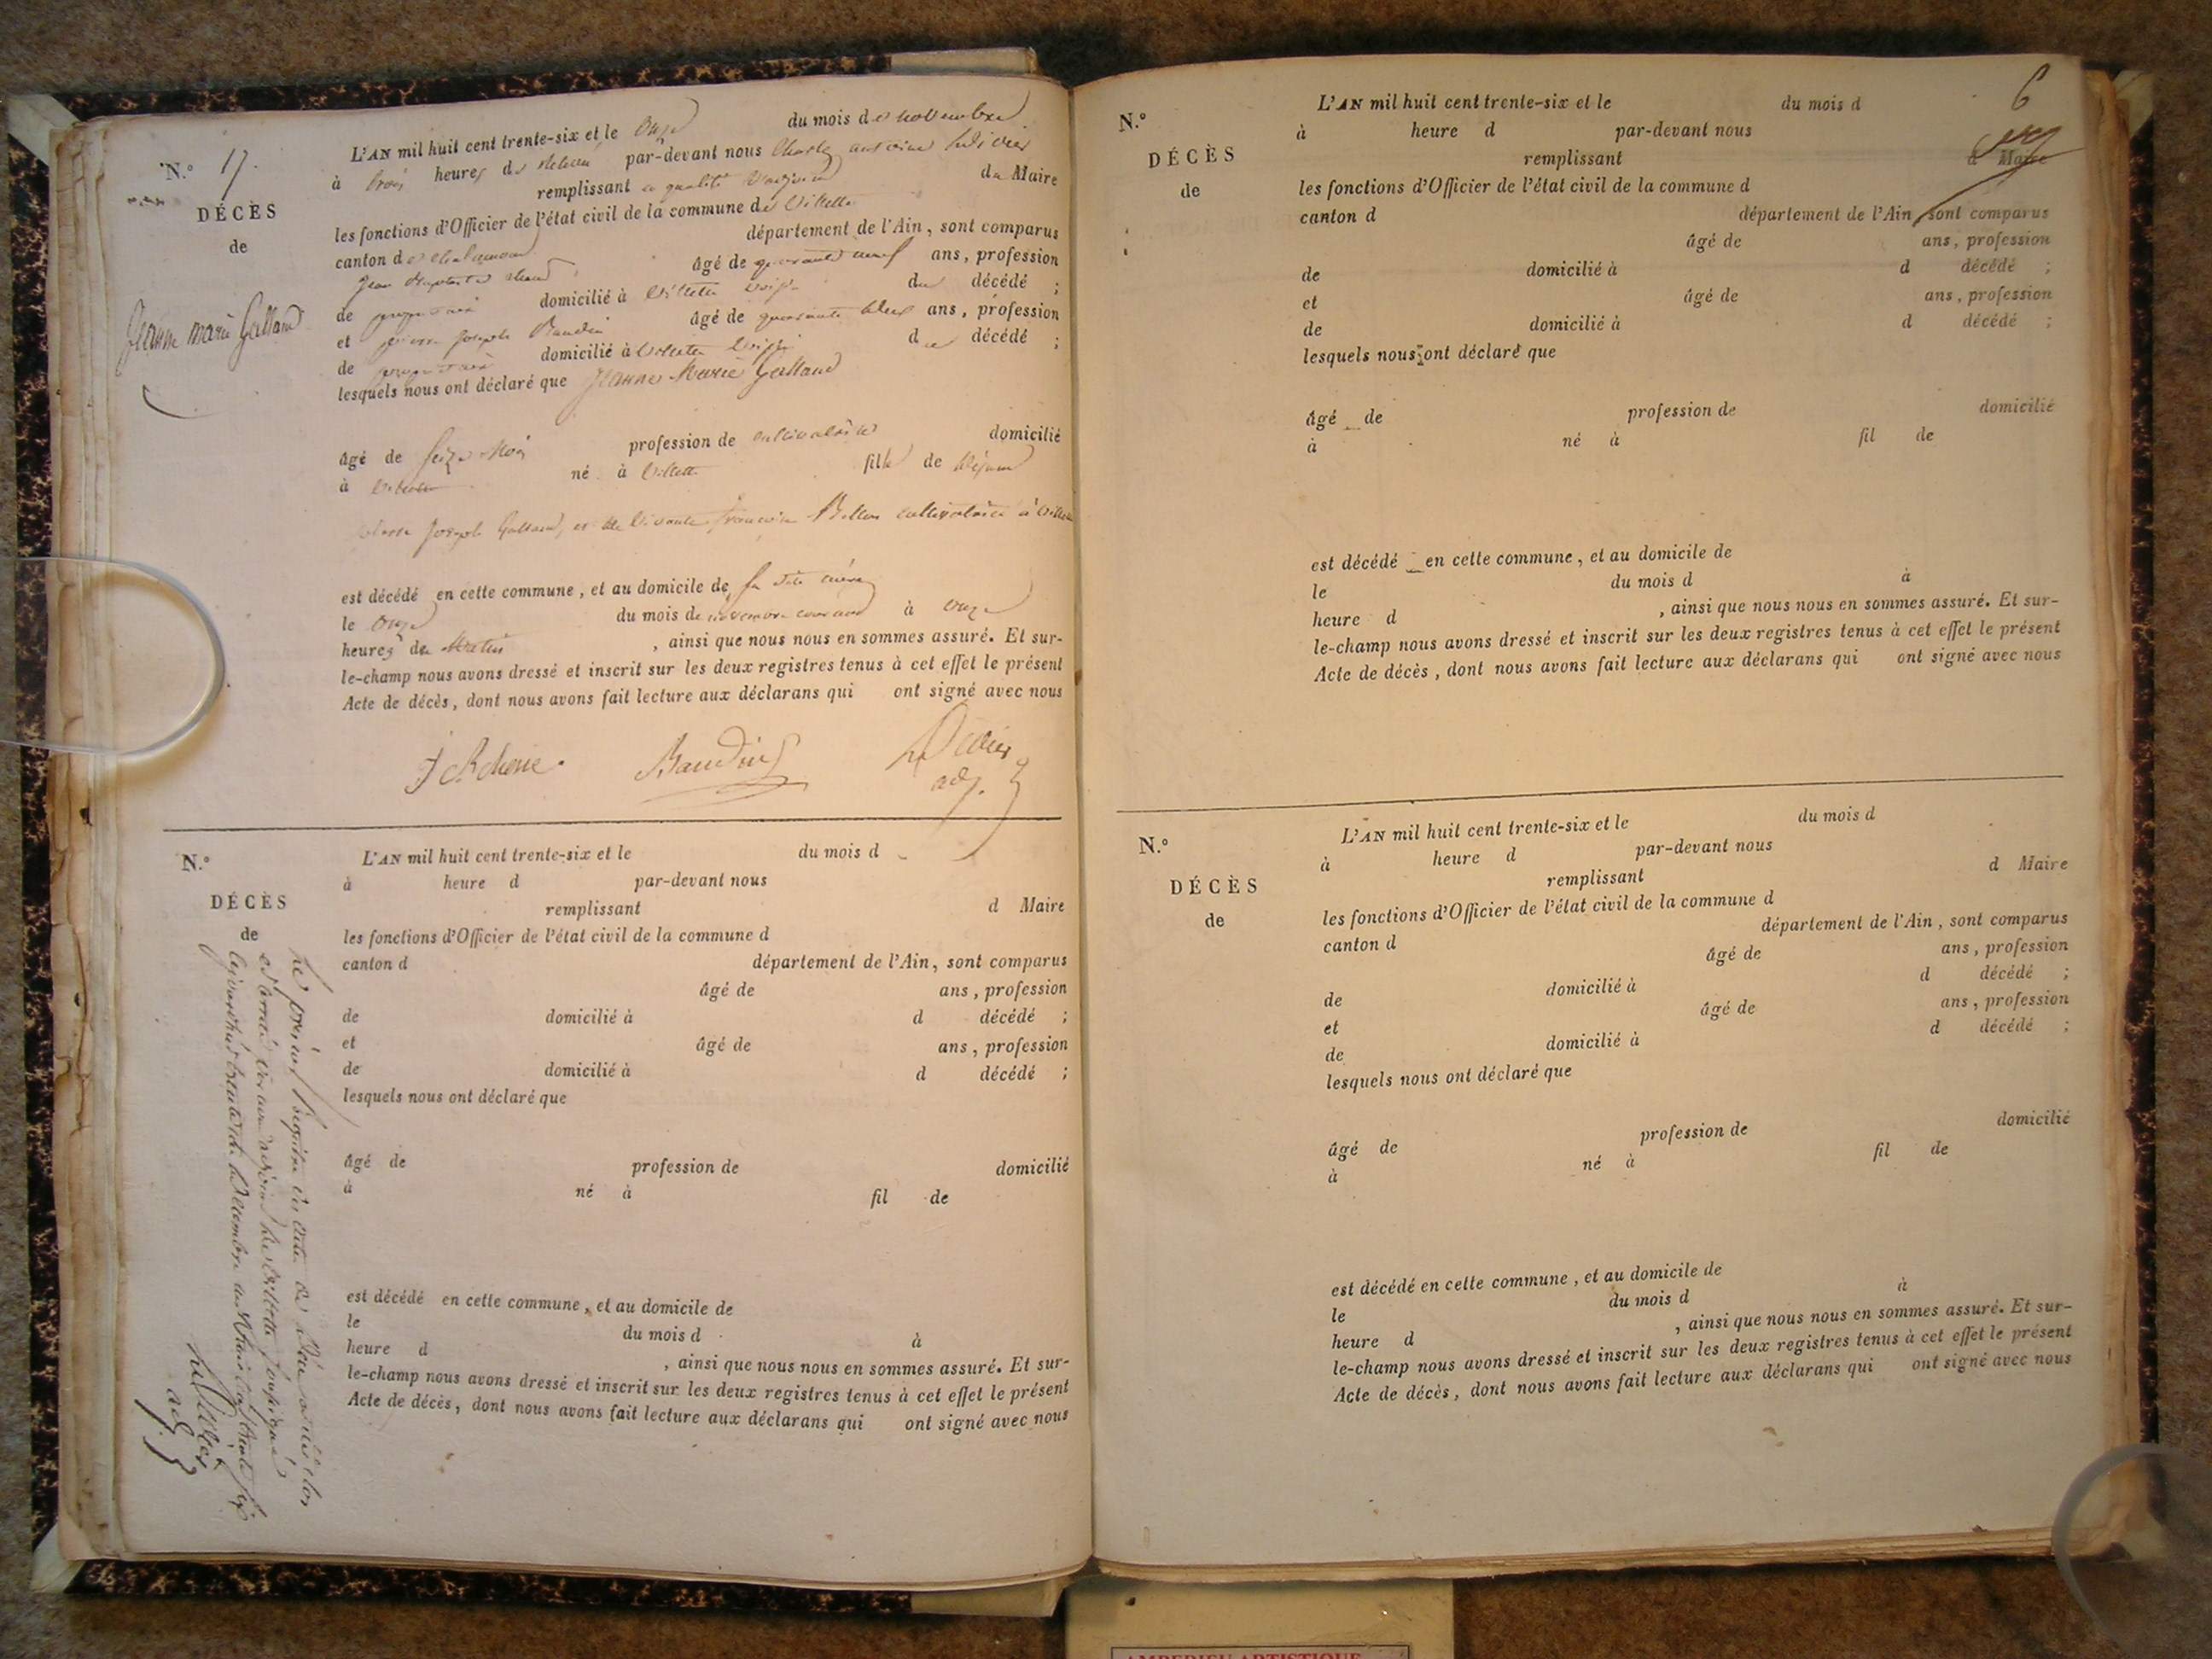 N.° 17.
DÉCÈS
de
Jeanne Marie Galland
L'AN mil huit cent trente-six et le onze du mois de novembre
à trois heures du par-devant nous Charles antoine
remplissant en qualité d'adjoint du Maire
les fonctions d'Officier de l'état civil de la commune de Villette
canton de chalamont département de l'Ain, sont comparus
Jean Baptiste âgé de quarante neuf ans, profession
de propriétaire domicilié à Villette voisin du décédé ;
et pierre joseph Baudin âgé de quarante deux ans, profession
de propriétaire domicilié à Villette voisin du décédé ;
lesquels nous ont déclaré que Jeanne Marie Galland
âgé de seize mois profession de cultivatrice domicilié
à Villette né à Villette fille de défunt
pierre joseph Galland, et de vivante françoise cultivatrice à Villette
est décédé en cette commune, et au domicile de sa dite mère
le onze du mois de novembre courant à onze
heures du Matin, ainsi que nous nous en sommes assuré. Et sur-
le-champ nous avons dressé et inscrit sur les deux registres tenus à cet effet le présent
Acte de décès, dont nous avons fait lecture aux déclarans qui ont signé avec nous
Baudin
adj.
N.°
DÉCÈS
de
L'AN mil huit cent trente-six et le du mois d
à heure d par-devant nous
remplissant d Maire
les fonctions d'Officier de l'état civil de la commune d
canton d département de l'Ain, sont comparus
âgé de ans, profession
de domicilié à d décédé ;
et âgé de ans, profession
de domicilié à d décédé ;
lesquels nous ont déclaré que
âgé de profession de domicilié
à né à fil de
est décédé en cette commune, et au domicile de
le du mois d à
heure d , ainsi que nous nous en sommes assuré. Et sur-
le-champ nous avons dressé et inscrit sur les deux registres tenus à cet effet le présent
Acte de décès, dont nous avons fait lecture aux déclarans qui ont signé avec nous
Le présent registre des actes de Décès a été clos
et arrêté par nous adjoint de Villette soussigné
cejourd'hui trente de Décembre mil huit cent trente six
adj.
6
N.°
DÉCÈS
de
L'AN mil huit cent trente-six et le du mois d
à heure d par-devant nous
remplissant d Maire
les fonctions d'Officier de l'état civil de la commune d
canton d département de l'Ain, sont comparus
âgé de ans, profession
de domicilié à d décédé ;
et âgé de ans, profession
de domicilié à d décédé ;
lesquels nous ont déclaré que
âgé de profession de domicilié
à né à fil de
est décédé en cette commune, et au domicile de
le du mois d à
heure d , ainsi que nous nous en sommes assuré. Et sur-
le-champ nous avons dressé et inscrit sur les deux registres tenus à cet effet le présent
Acte de décès, dont nous avons fait lecture aux déclarans qui ont signé avec nous
N.°
DÉCÈS
de
L'AN mil huit cent trente-six et le du mois d
à heure d par-devant nous
remplissant d Maire
les fonctions d'Officier de l'état civil de la commune d
canton d département de l'Ain, sont comparus
âgé de ans, profession
de domicilié à d décédé ;
et âgé de ans, profession
de domicilié à d décédé ;
lesquels nous ont déclaré que
âgé de profession de domicilié
à né à fil de
est décédé en cette commune, et au domicile de
le du mois d à
heure d , ainsi que nous nous en sommes assuré. Et sur-
le-champ nous avons dressé et inscrit sur les deux registres tenus à cet effet le présent
Acte de décès, dont nous avons fait lecture aux déclarans qui ont signé avec nous